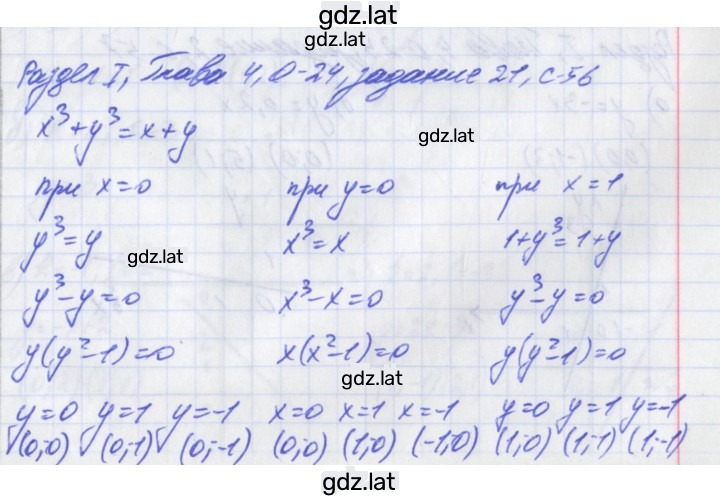 gdz.lat
Раздел I, Глава 4, О-24, задание 21, с-56
x³+y³=x+y
gdz.lat
при x=0 при y=0 при x=1
y³=y x³=x 1+y³=1+y
gdz.lat
y³-y=0 x³-x=0 y³-y=0
y(y²-1)=0 x(x²-1)=0 y(y²-1)=0
gdz.lat
y=0 y=1 y=-1 x=0 x=1 x=-1 y=0 y=1 y=-1
(0;0) (0;1) (0;-1) (0;0) (1;0) (-1;0) (1;0) (1;1) (1;-1)
gdz.lat